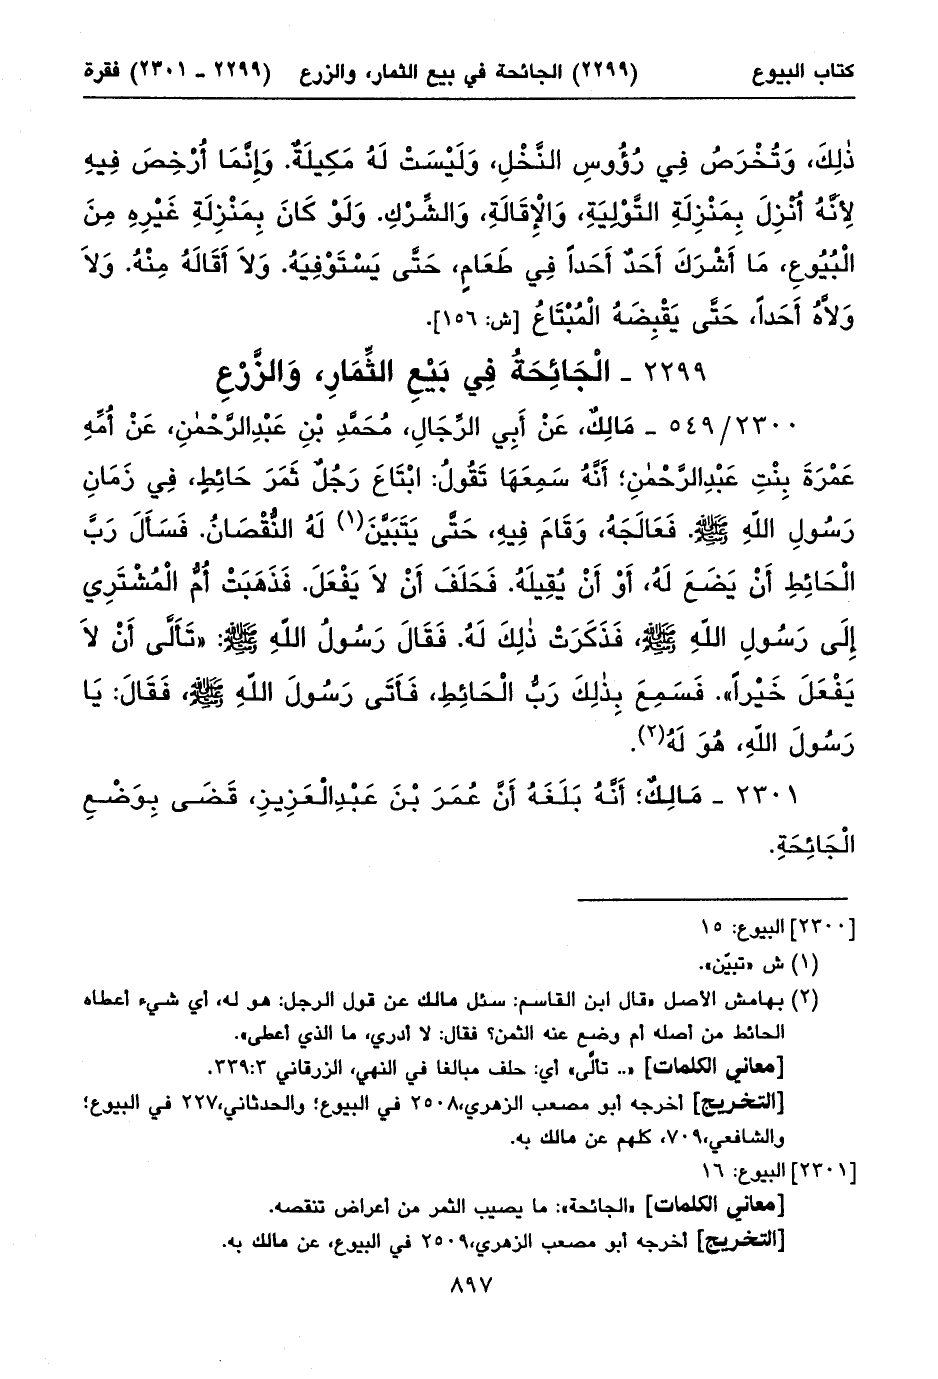 كتاب البيوع (٢٢٩٩) الجائحة في بيع الثمار، والزرع (٢٢٩٩ - ٢٣٠١) فقرة
ذٰلِكَ، وَتُخْرَصُ فِي رُؤُوسِ النَّخْلِ، وَلَيْسَتْ لَهُ مَكِيلَةٌ. وَإِنَّمَا أُرْخِصَ فِيهِ
لِأَنَّهُ أُنْزِلَ بِمَنْزِلَةِ التَّوْلِيَةِ، وَالْإِقَالَةِ، وَالشِّرْكِ. وَلَوْ كَانَ بِمَنْزِلَةِ غَيْرِهِ مِنَ
الْبُيُوعِ، مَا أَشْرَكَ أَحَدٌ أَحَداً فِي طَعَامٍ، حَتَّى يَسْتَوْفِيَهُ. وَلاَ أَقَالَهُ مِنْهُ. وَلاَ
وَلاَّهُ أَحَداً، حَتَّى يَقْبِضَهُ الْمُبْتَاعُ [ش: ١٥٦].
٢٢٩٩ - الْجَائِحَةُ فِي بَيْعِ الثِّمَارِ، وَالزَّرْعِ
٥٤٩/٢٣٠٠ - مَالِكٌ، عَنْ أَبِي الرِّجَالِ، مُحَمَّدِ بْنِ عَبْدِالرَّحْمٰنِ، عَنْ أُمِّهِ
عَمْرَةَ بِنْتِ عَبْدِالرَّحْمٰنِ؛ أَنَّهُ سَمِعَهَا تَقُولُ: ابْتَاعَ رَجُلٌ ثَمَرَ حَائِطٍ، فِي زَمَانِ
رَسُولِ اللّهِ ﷺ. فَعَالَجَهُ، وَقَامَ فِيهِ، حَتَّى يَتَبَيَّنَ(١) لَهُ النُّقْصَانُ. فَسَأَلَ رَبَّ
الْحَائِطِ أَنْ يَضَعَ لَهُ، أَوْ أَنْ يُقِيلَهُ. فَحَلَفَ أَنْ لاَ يَفْعَلَ. فَذَهَبَتْ أُمُّ الْمُشْتَرِي
إِلَى رَسُولِ اللّهِ ﷺ، فَذَكَرَتْ ذٰلِكَ لَهُ. فَقَالَ رَسُولُ اللّهِ ﷺ: «تَأَلَّى أَنْ لاَ
يَفْعَلَ خَيْراً». فَسَمِعَ بِذٰلِكَ رَبُّ الْحَائِطِ، فَأَتَى رَسُولَ اللّهِ ﷺ، فَقَالَ: يَا
رَسُولَ اللّهِ، هُوَ لَهُ(٢).
٢٣٠١ - مَالِكٌ؛ أَنَّهُ بَلَغَهُ أَنَّ عُمَرَ بْنَ عَبْدِالْعَزِيزِ، قَضَى بِوَضْعِ
الْجَائِحَةِ.
[٢٣٠٠] البيوع: ١٥
(١) ش «تبيّن».
(٢) بهامش الأصل «قال ابن القاسم: سئل مالك عن قول الرجل: هو له، أي شيء أعطاه
الحائط من أصله أم وضع عنه الثمن؟ فقال: لا أدري، ما الذي أعطى».
[معاني الكلمات] «.. تألّى» أي: حلف مبالغا في النهي، الزرقاني ٣٣٩:٣.
[التخريج] أخرجه أبو مصعب الزهري،٢٥٠٨ في البيوع؛ والحدثاني،٢٢٧ في البيوع؛
والشافعي،٧٠٩، كلهم عن مالك به.
[٢٣٠١] البيوع: ١٦
[معاني الكلمات] «الجائحة»: ما يصيب الثمر من أعراض تنقصه.
[التخريج] أخرجه أبو مصعب الزهري،٢٥٠٩ في البيوع، عن مالك به.
٨٩٧